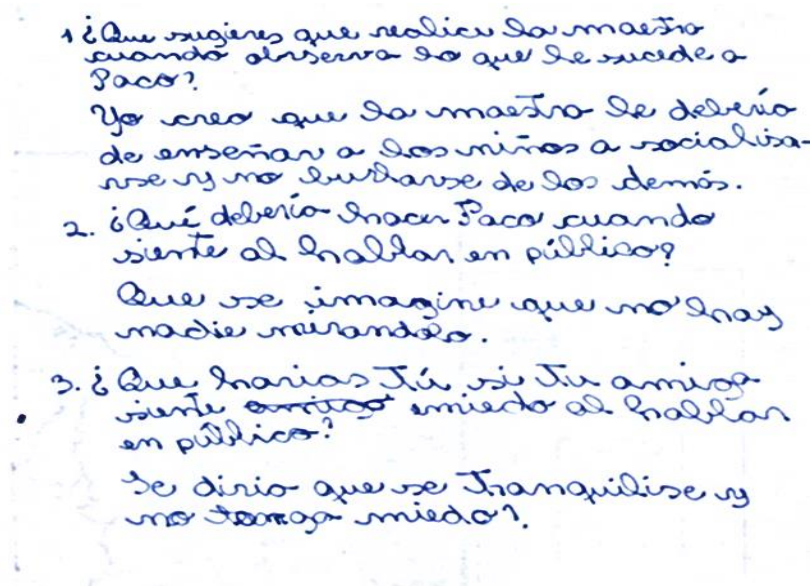 1 ¿Que sugieres que realice la maestra
cuando observa lo que le sucede a
Paco?
Yo creo que la maestra le debería
de enseñar a los niños a socialisa-
rse y no burlarse de los demás.
2. ¿Qué debería hacer Paco cuando
siente al hablar en público?
Que se imagine que no hay
nadie mirandolo.
3. ¿Que harias tú si tu amiga
siente miedo al hablar
en público?
Le diria que se tranquilise y
no tenga miedo?.